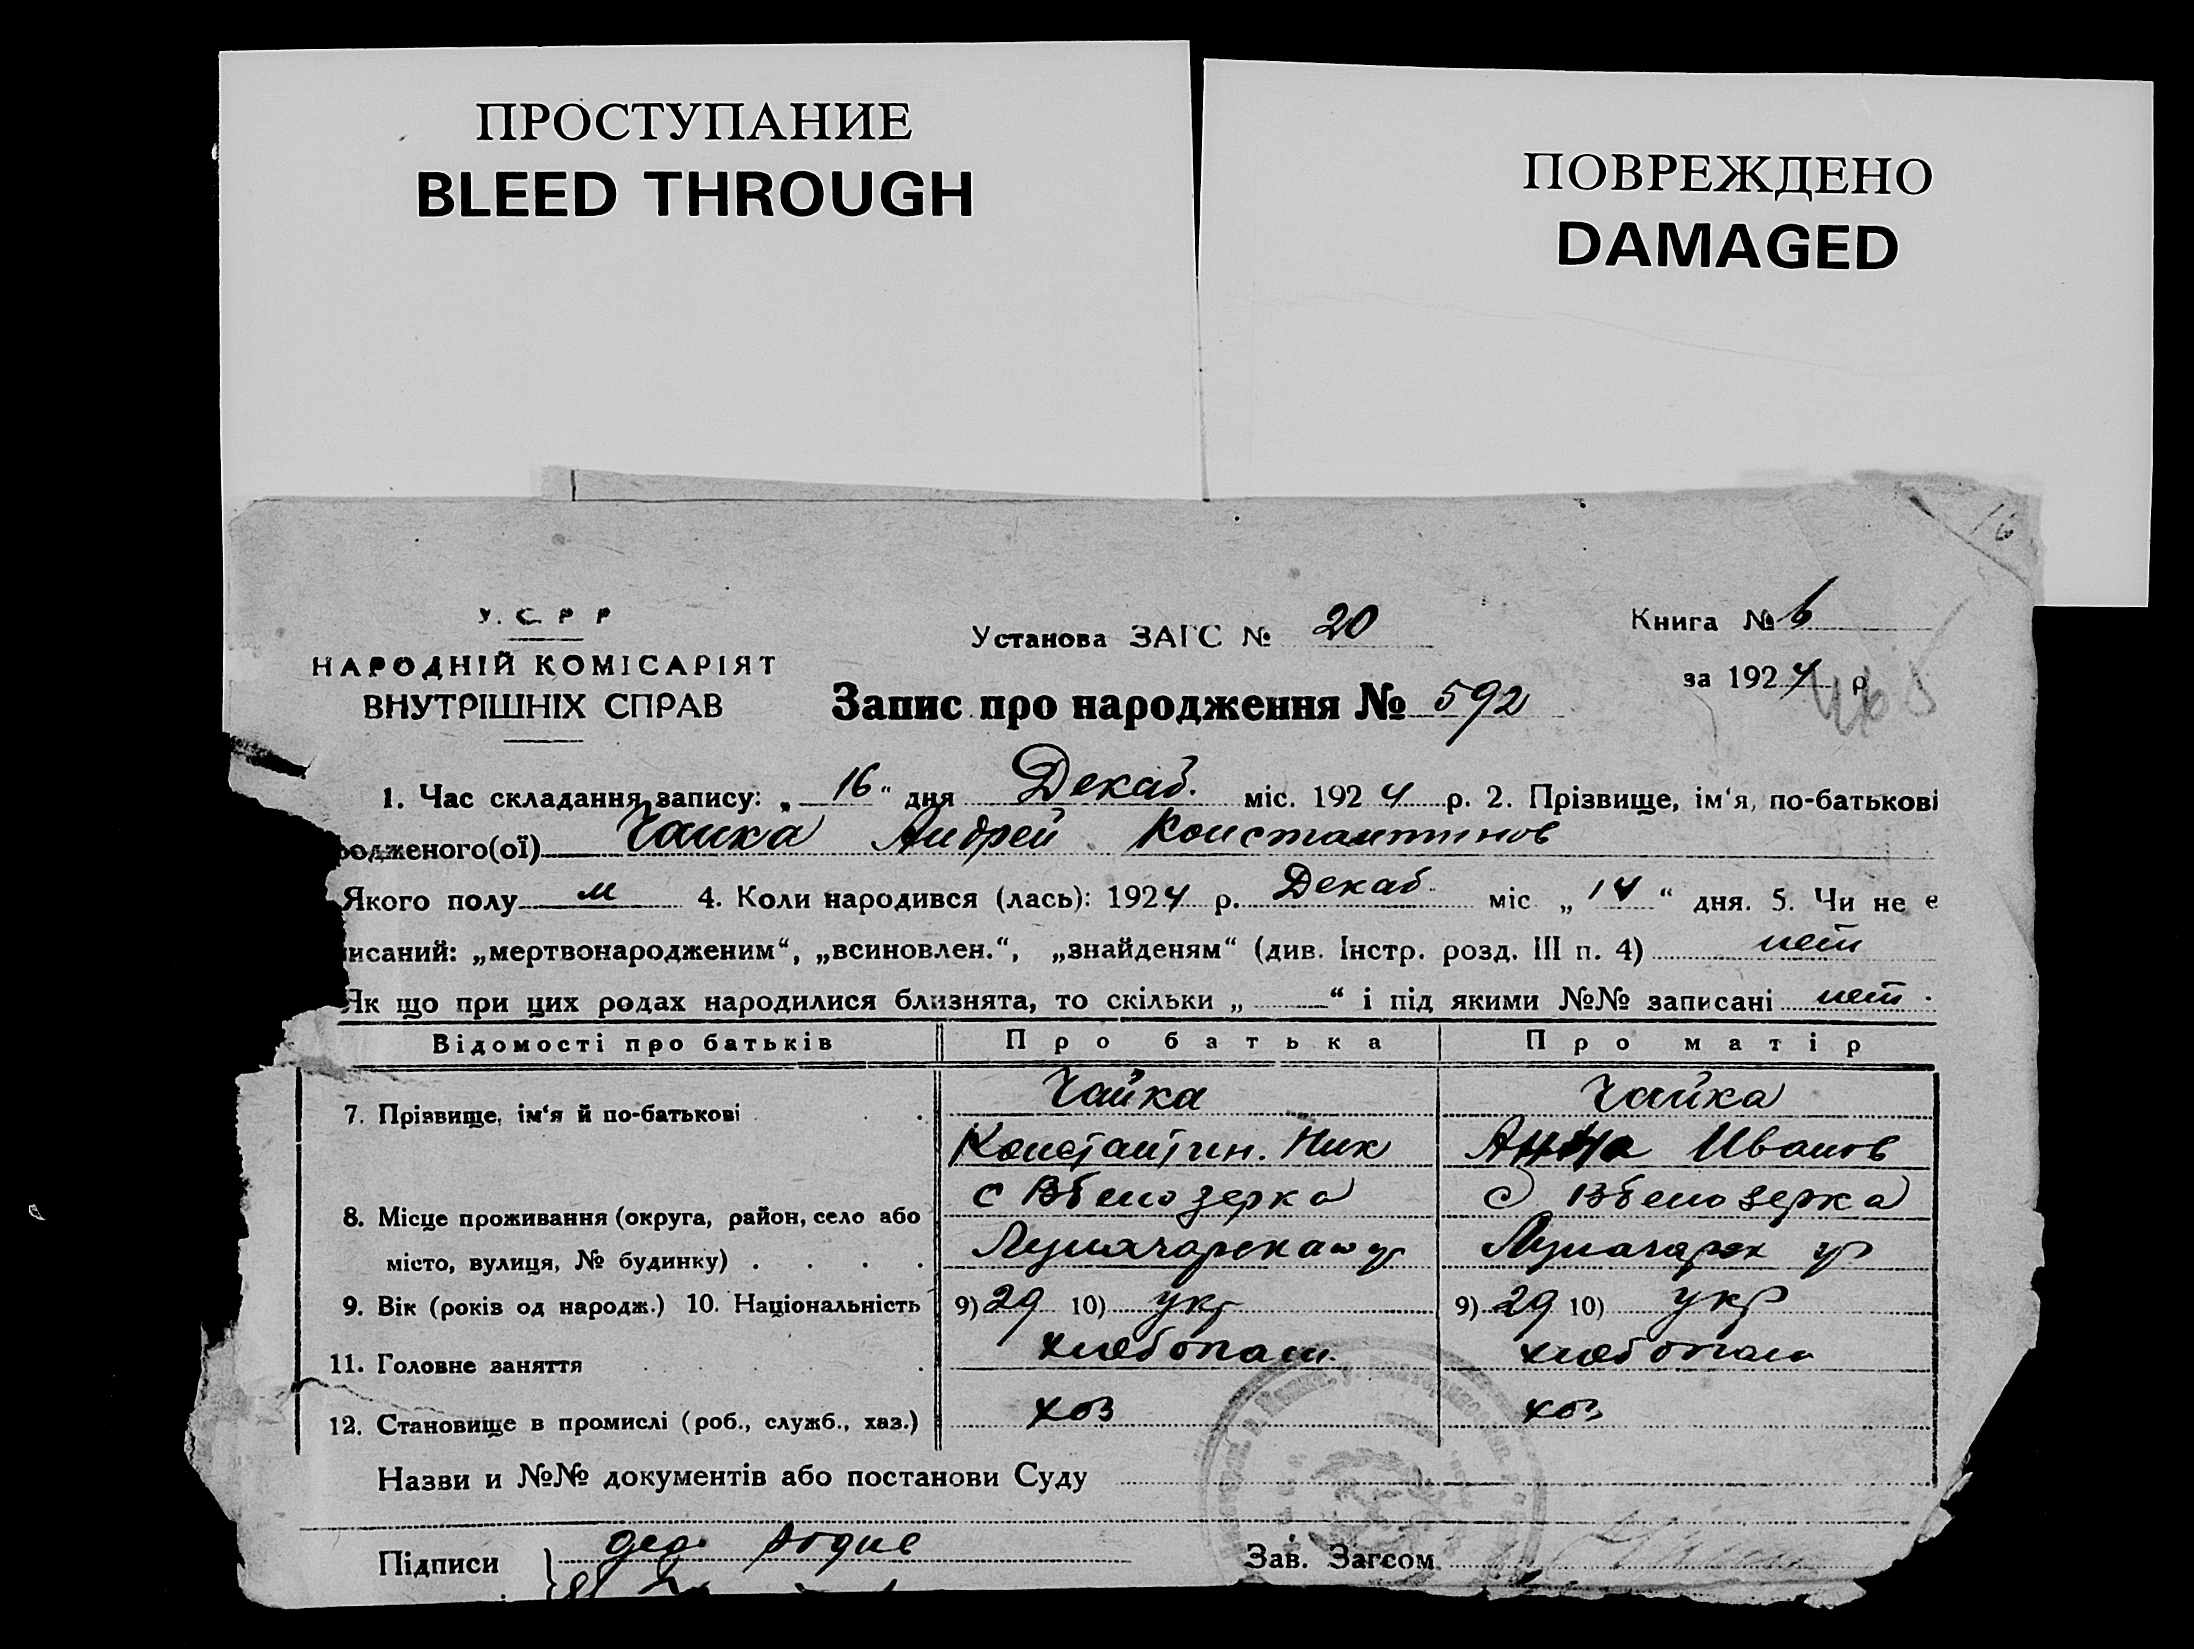 ПРОСТУПАНИЕ
BLEED THROUGH
ПОВРЕЖДЕНО
DAMAGED
16
У. С. Р Р
НАРОДНІЙ КОМІСАРІЯТ
ВНУТРІШНІХ СПРАВ
Установа ЗАГС № 20
Книга № 6
за 1924 р
Запис про народження № 592
1. Час складання запису: „ 16 “ дня Декаб. міс. 1924 р. 2. Прізвище, ім‘я, по-батькові
родженого(ої) Чайка Андрей Константинов
Якого полу м 4. Коли народився (лась): 1924 р. Декаб. міс. „ 14 “ дня. 5. Чи не є
исаний: „мертвонародженим“, „всиновлен.“, „знайденям“ (див. Інстр. розд. III п. 4) нет
Як що при цих родах народилися близнята, то скільки „ “ і під якими №№ записані нет .
Відомості про батьків Про батька Про матір
7. Прізвище, ім‘я й по-батькові Чайка Чайка
Константин. Ник Анна Иванов
8. Місце проживання (округа, район, село або с Вбелозерка с Вбелозерка
місто, вулиця, № будинку) Луначарская ул Луначарск ул
9. Вік (років од народж.) 10. Національність 9) 29 10) укр 9) 29 10) укр
11. Головне заняття хлебопаш. хлебопаш
12. Становище в промислі (роб., служб., хаз.) хоз хоз
Назви и №№ документів або постанови Суду
Підписи } дед.
Зав. Загсом